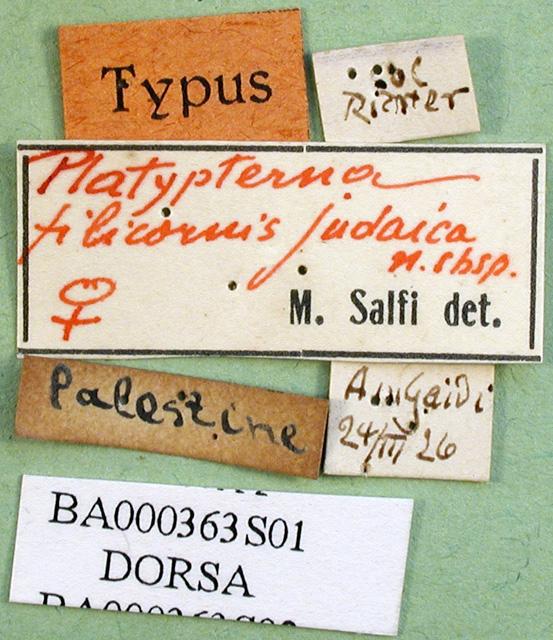 Typus
Col
Richter
Platypterna
filicornis judaica
n. sbsp.
♀
M. Salfi det.
Palestine
24/III 26
BA000363S01
DORSA